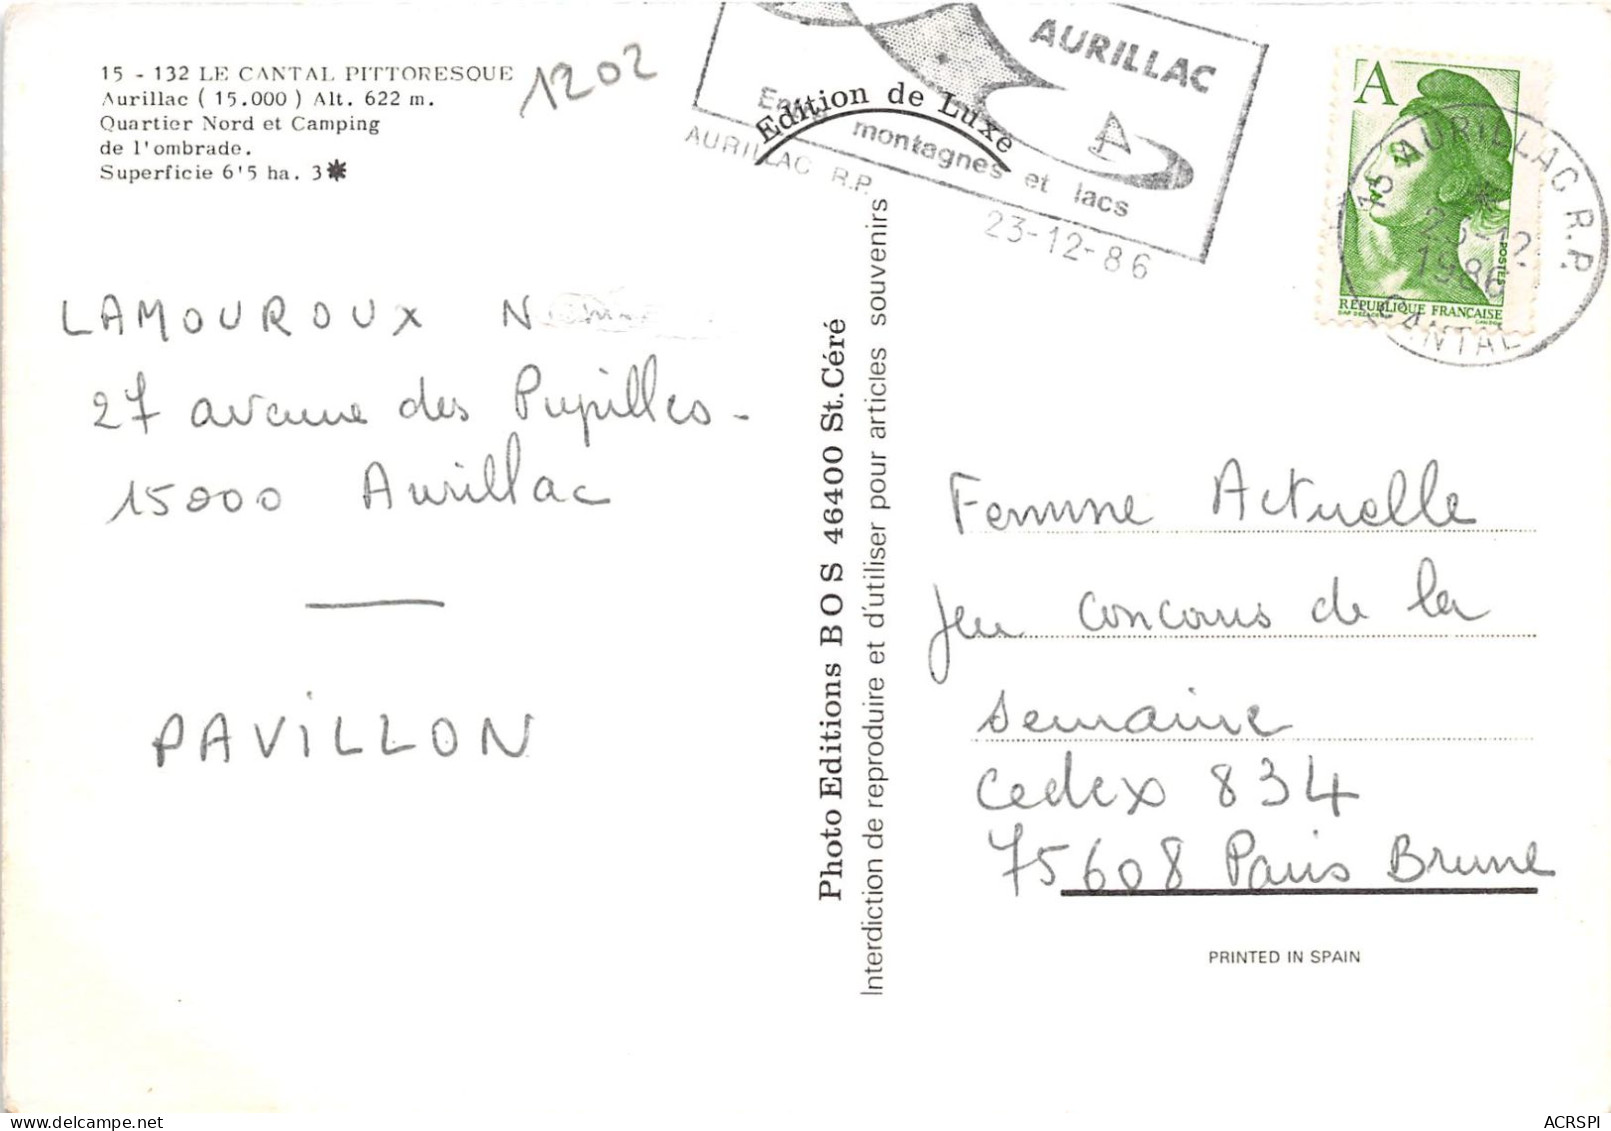 15 - 132 LE CANTAL PITTORESQUE
Aurillac ( 15.000 ) Alt. 622 m.
Quartier Nord et Camping
de l'ombrade.
Superficie 6'5 ha. 3
1202
AURILLAC
Entre montagnes et lacs
AURILLAC R.P.
23-12-86
Edition de Luxe
A
POSTES
RÉPUBLIQUE FRANÇAISE
15 AURILLAC R.P.
23-12
1986
CANTAL
LAMOUROUX N
27 avenue des Pupilles -
15000 Aurillac
PAVILLON
Photo Editions BOS 46400 St. Céré
Interdiction de reproduire et d'utiliser pour articles souvenirs
Femme Actuelle
Jeu concours de la
semaine
cedex 834
75608 Paris Brune
PRINTED IN SPAIN
ACRSPI